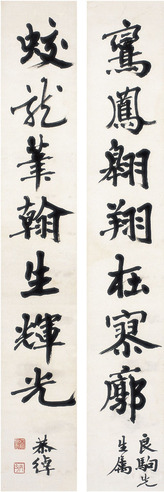 騫鳳翱翔在寥廓
良駒先
生屬
蛟龍筆翰生輝光
恭綽